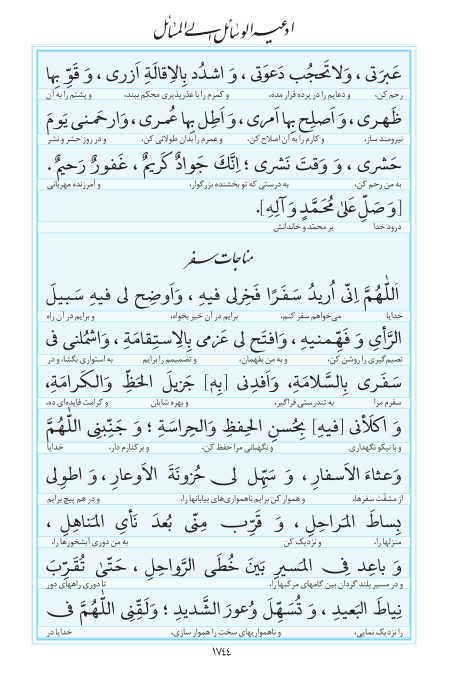 ادعیه الوسائل الی المسائل
عَبرَتی ، وَلاتَحجُب دَعوَتی ، وَ اشدُد بِالاِقالَةِ اَزری ، وَ قَوِّ بِها
رحم کن، و دعایم را در پرده قرار مده، و کمرم را با عذرپذیری محکم ببند، و پشتم را به آن
ظَهری ، وَ اَصلِح بِها اَمری ، وَ اَطِل بِها عُمری ، وَارحَمنی یَومَ
نیرومند ساز، و کارم را به آن اصلاح کن، و عمرم را بدان طولانی کن، و در روز حشر و نشر
حَشری ، وَ وَقتَ نَشری ؛ اِنَّکَ جَوادٌ کَریمٌ ، غَفورٌ رَحیمٌ .
به من رحم کن، به درستی که تو بخشنده بزرگوار، و آمرزنده مهربانی
[وَ صَلِّ عَلیٰ مُحَمَّدٍ وَ آلِهِ].
درود خدا بر محمّد و خاندانش
مناجات سفر
اَللّٰهُمَّ اِنّی اُریدُ سَفَرًا فَخِرلی فیهِ ، وَ اَوضِح لی فیهِ سَبیلَ
خدایا می‌خواهم سفر کنم، برایم در آن خیر بخواه، و برایم در آن راه
الرَّأیِ وَ فَهِّمنیهِ ، وَافتَح لی عَزمی بِالاِستِقامَةِ ، وَاشمُلنی فی
تصمیم‌گیری را روشن کن، و به من بفهمان، و تصمیمم را برایم به استواری بگشا، و در
سَفَری بِالسَّلامَةِ، وَ اَفِدنی [بِهِ] جَزیلَ الحَظِّ وَ الکَرامَةِ،
سفرم مرا به تندرستی فراگیر، و بهره شایان و کرامت فایده‌ای ده،
وَ اکلَأنی [فیهِ] بِحُسنِ الحِفظِ وَ الحِراسَةِ ؛ وَ جَنِّبنِی اللّٰهُمَّ
و با نیکو نگهداری و نگهبانی مرا حفظ کن، و برکنار دار، خدایا
وَعثاءَ الاَسفارِ ، وَ سَهِّل لی حُزونَةَ الاَوعارِ ، وَ اطوِلی
از مشقّت سفرها، و هموار کن برایم ناهمواری‌های بیابانها را، و در هم پیچ برایم
بِساطَ المَراحِلِ ، وَ قَرِّب مِنّی بُعدَ نَأیِ المَناهِلِ ،
منزلها را، و نزدیک کن به من دوری آبشخورها را،
وَ باعِد فِی المَسیرِ بَینَ خُطَی الرَّواحِلِ ، حَتّیٰ تُقَرِّبَ
و در مسیر بلند گردان بین گامهای مرکبها را، تا دوری راههای دور
نِیاطَ البَعیدِ ، وَ تُسَهِّلَ وُعورَ الشَّدیدِ ؛ وَ لَقِّنِی اللّٰهُمَّ فی
را نزدیک نمایی، و ناهمواریهای سخت را هموار سازی، خدایا در
۱۷۴۴